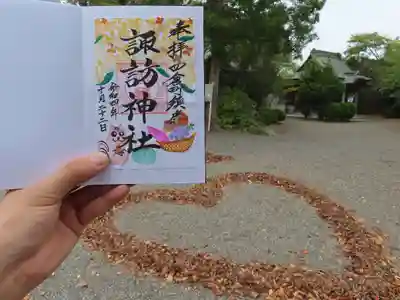 奉拝
諏訪神社
令和四年
十月二十二日